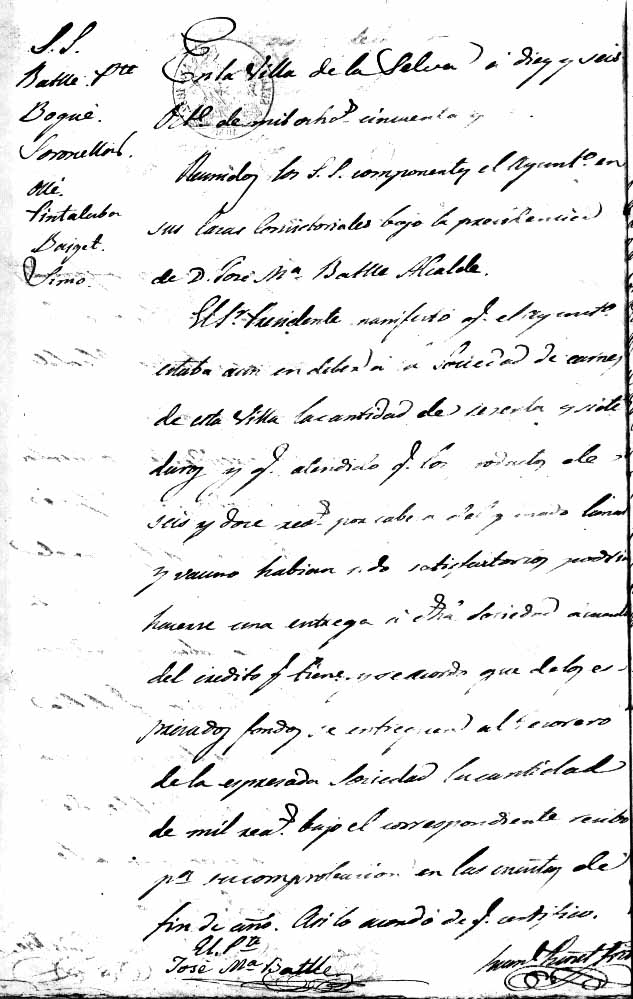 S.S.
Batlle Pte
Boqué.
Soronellas.
Ollé.
Pintaluba
Baiget.
Simó.
En la Villa de la Selva a diez y seis
Obe. de mil ocho. cincuenta y
Reunidos los S.S. componentes el Ayunto. en
sus casas Consistoriales bajo la presidencia
de D. José Ma. Batlle Alcalde.
El Sr. Presidente manifestó q. el Ayunto.
estaba aun en deber a la Sociedad de carnes
de esta Villa la cantidad de sesenta y siete
duros y q. atendido q. los productos de
seis y doce reas. por cabeza del ganado lanar
y vacuno habian sido satisfactorios podria
hacerse una entrega a dha. Sociedad a cuenta
del credito q. tiene, y se acordó que de los es-
presados fondos se entreguen al tesorero
de la espresada Sociedad la cantidad
de mil reas. bajo el correspondiente recibo
pa. su comprobacion en las cuentas de
fin de año. Asi lo acordó de q. certifico.
El Pte
José Ma. Batlle